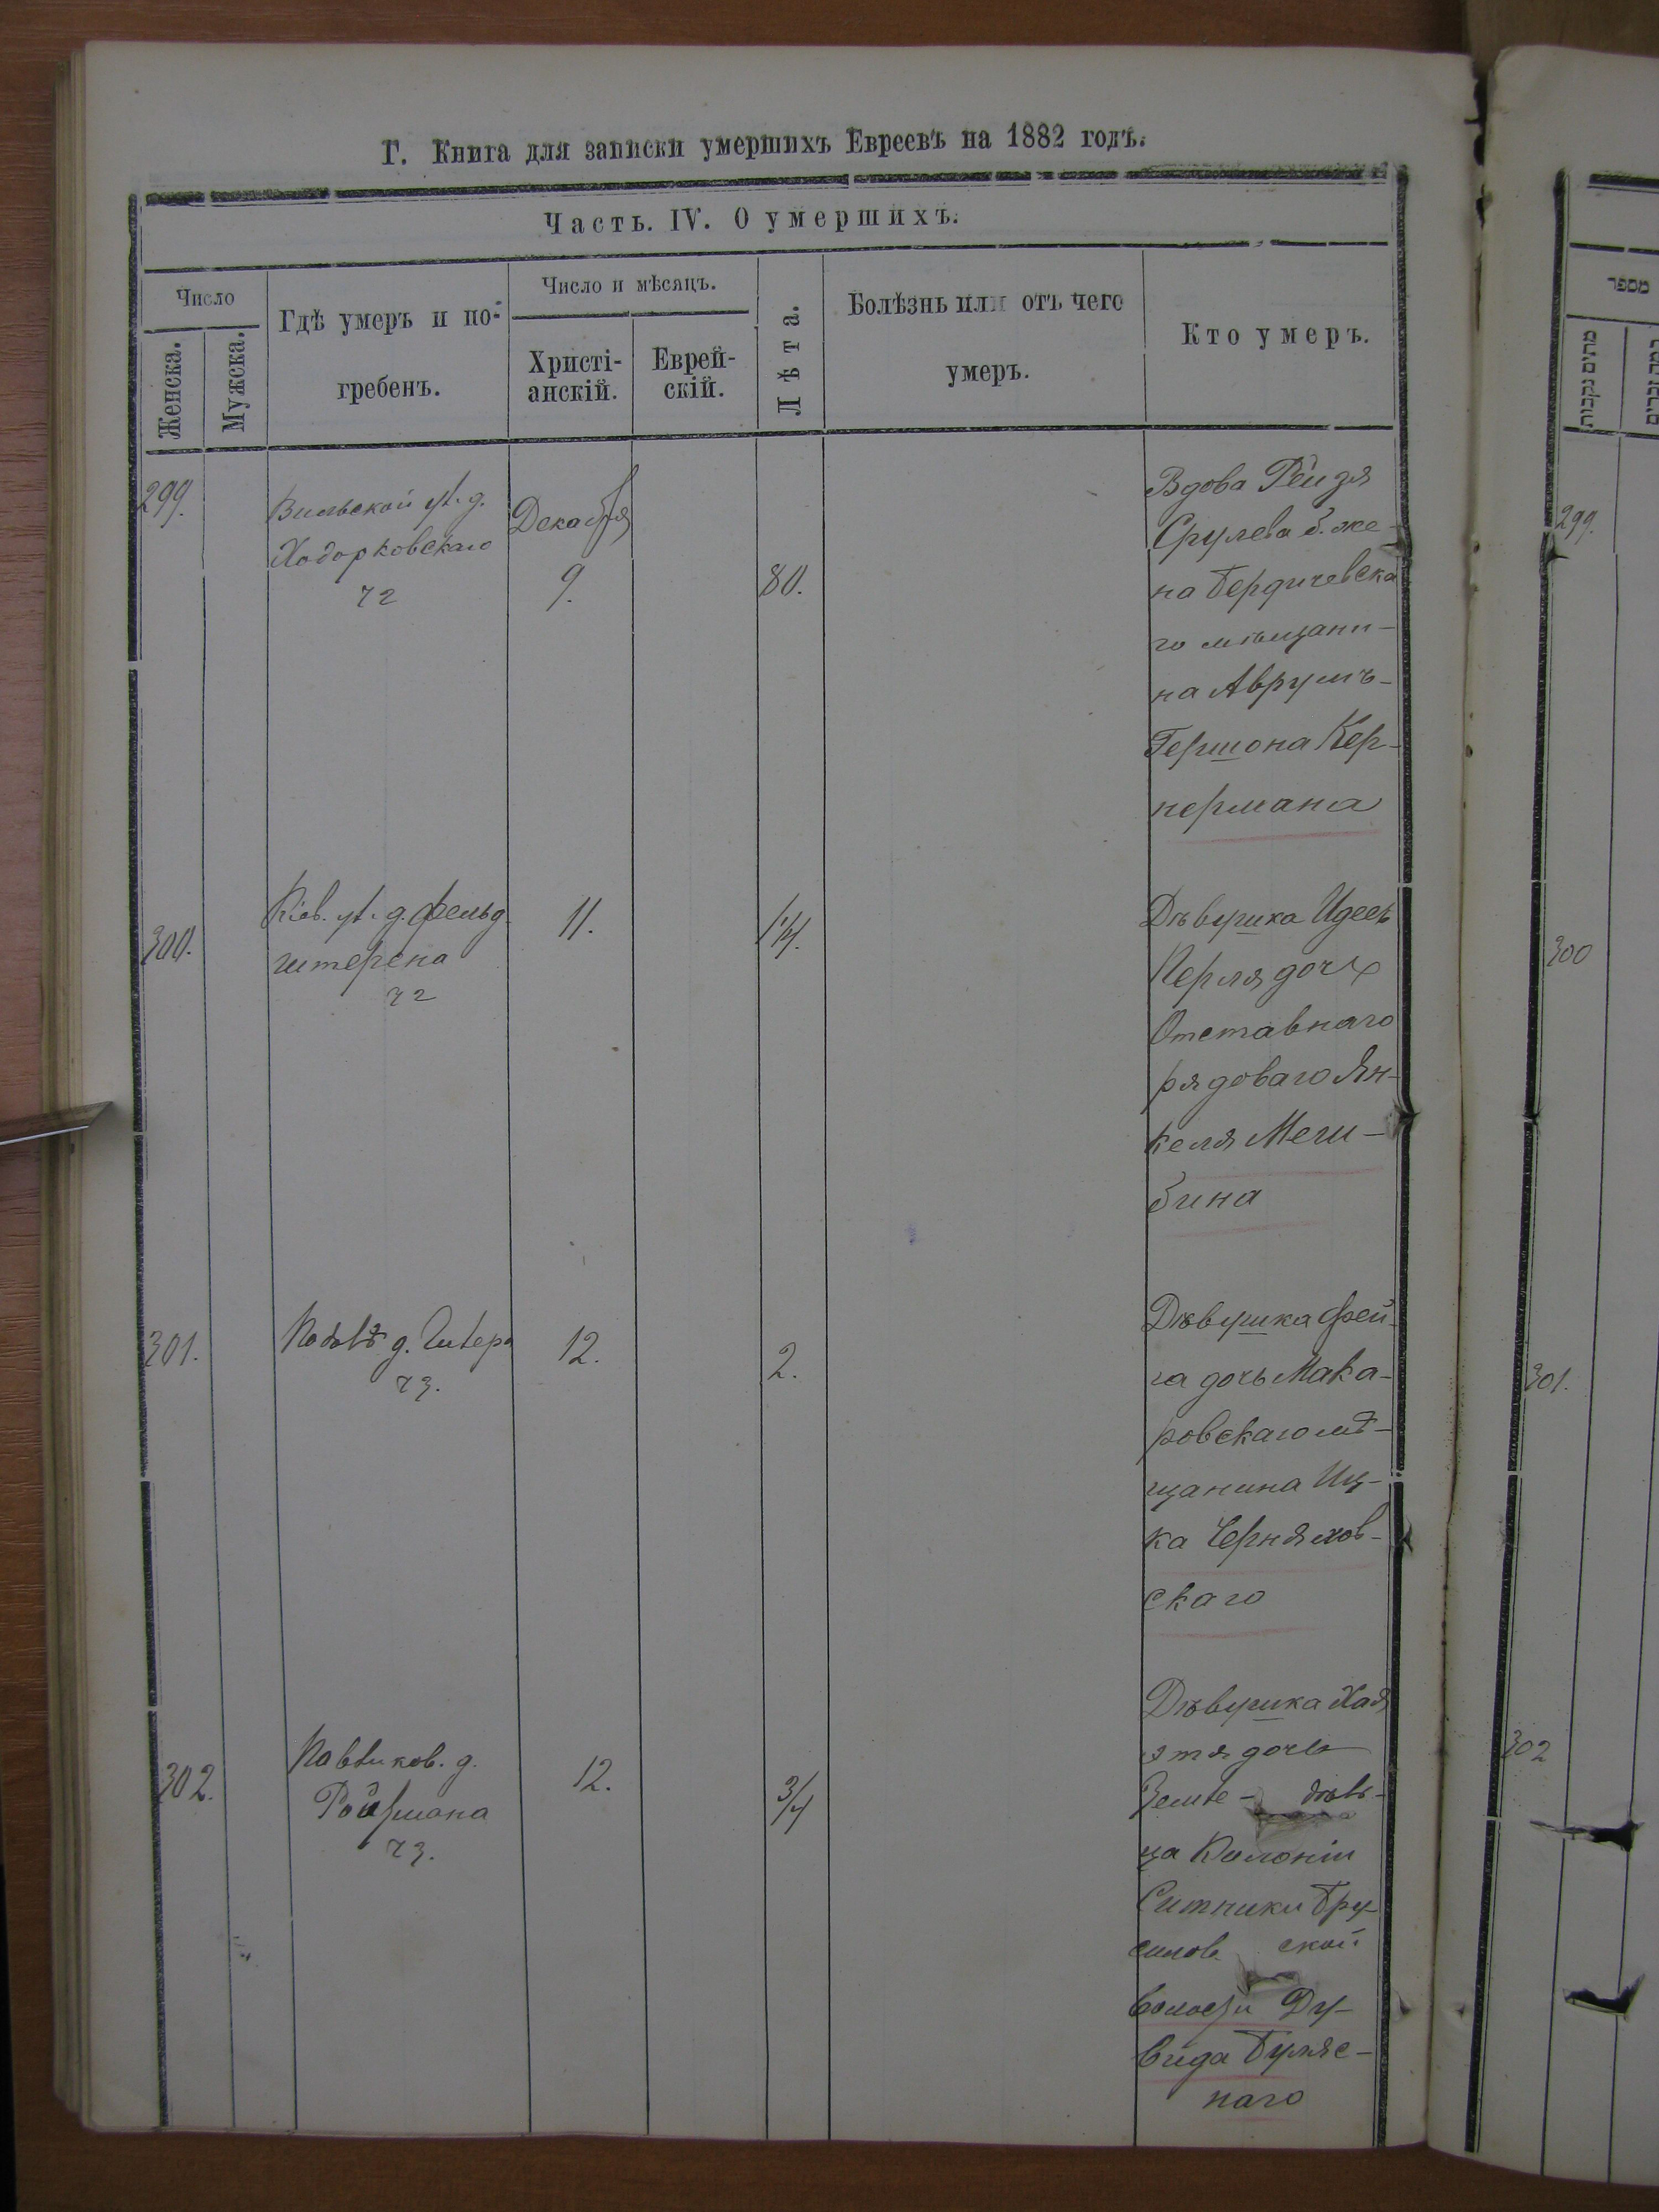 Г. Книга для записки умершихъ Евреевъ на 1882 годъ.
Часть. IV. О умершихъ.
Число
Женска.
Мужска.
Гдѣ умеръ и по-
гребенъ.
Число и мѣсяцъ.
Христі-
анскій.
Еврей-
скій.
Лѣта.
Болѣзнь или отъ чего
умеръ.
Кто умеръ.
299.
Вильской ул. д.
Ходорковскаго
72
Декабря
9.
80.
Вдова Рейзя
Срулева б. же-
на Бердичевска
го мѣщани-
на Аврумъ-
Гершона Кер-
нермана
300.
Кіев. ул. д. Фельд-
штерена
72
11.
1 1/4.
Дѣвушка Идесъ
Перля дочь
Отставнаго
рядоваго Ян-
келя Межи-
бина
301.
д. Штерн
73.
12.
2.
Дѣвушка Фей-
га дочь Мака-
ровскаго мѣ-
щанина Иц-
ка Черняхов-
скаго
302.
д.
Ройтмана
73.
12.
3/4
Дѣвушка Хая
этя дочь
Земле- дѣль-
ца Колоніи
Ситники Бру-
силов ской
волости Ду-
вида
наго
מספר
299.
300
301.
302